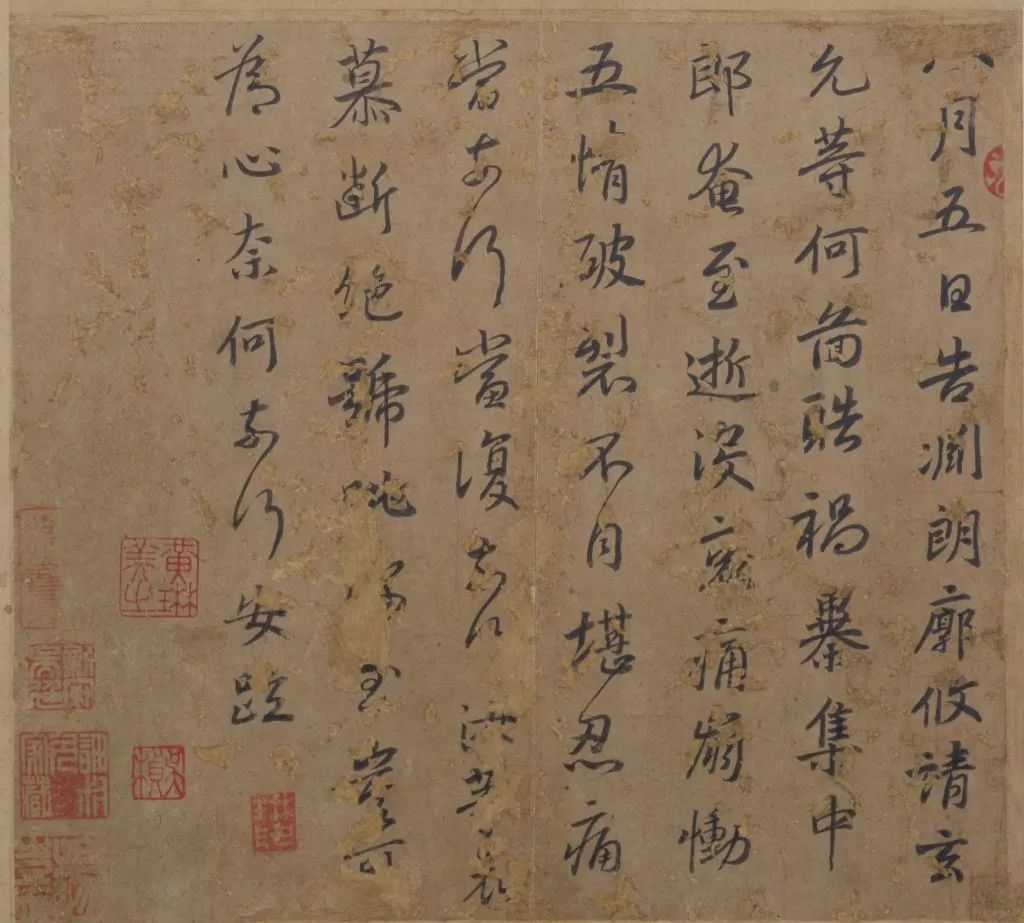 八月五日告淵朗廓攸靖玄
允等何圖酷禍暴集中
郎奄至逝没哀痛崩慟
五情破裂不自堪忍痛
當奈何當復奈何汝等哀
慕斷絶號咷深至豈可
為心奈何奈何安疏
黃琳美之
吳楨